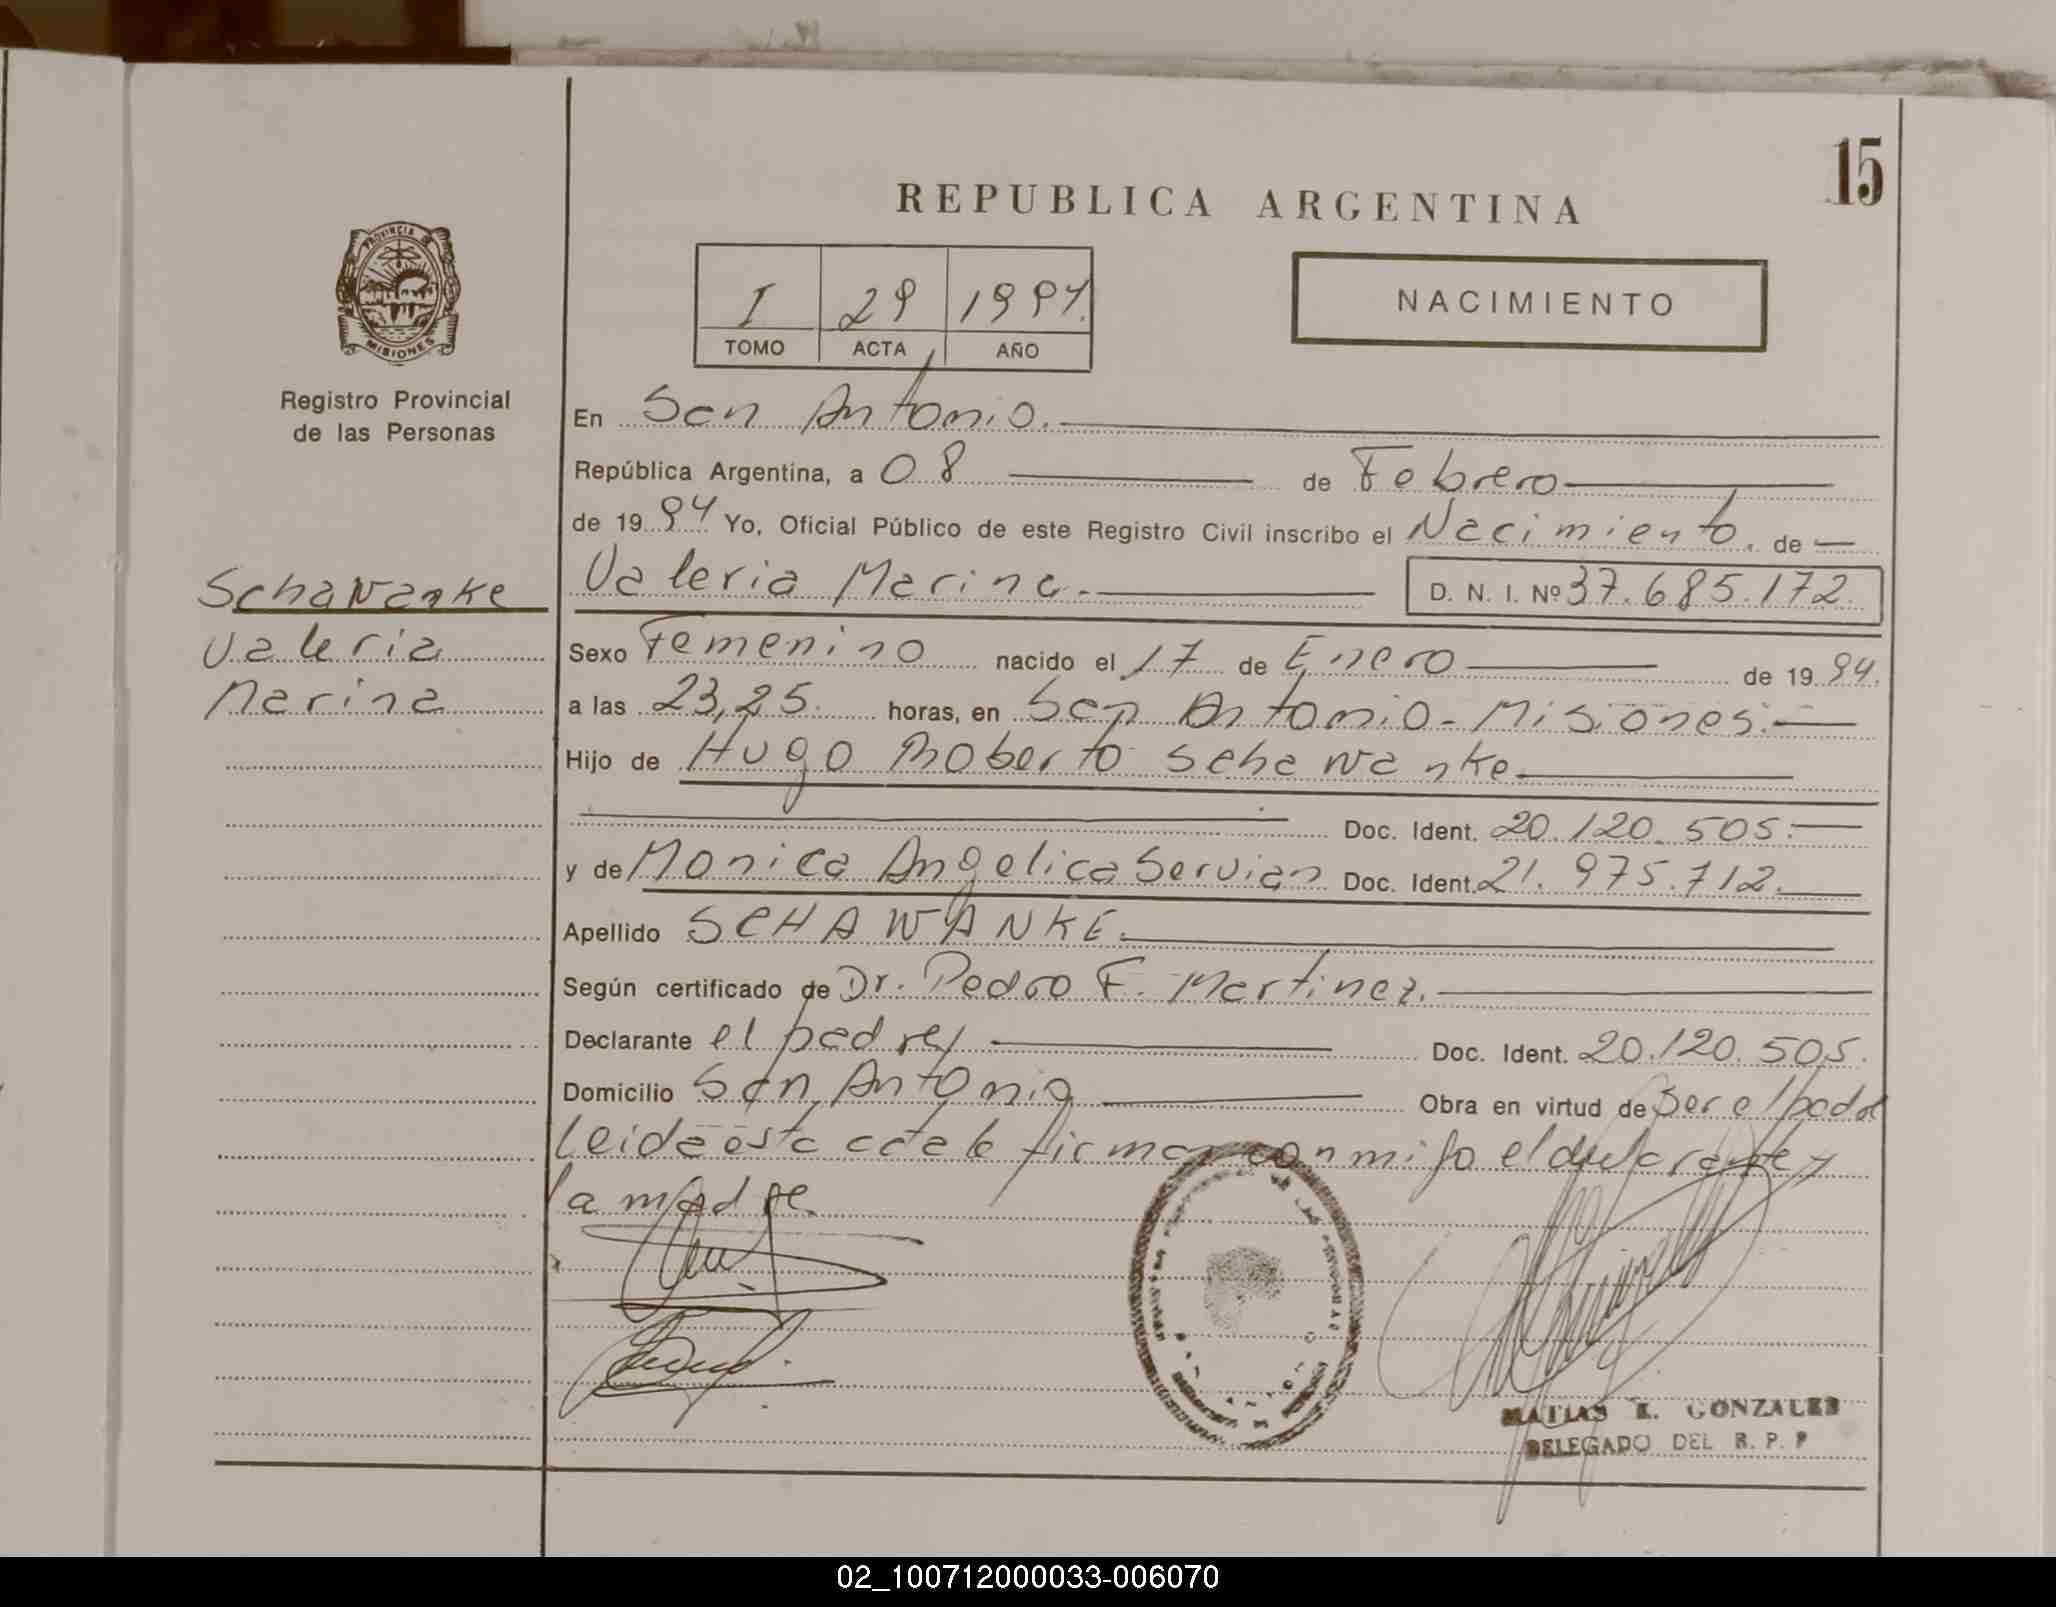 15
REPUBLICA ARGENTINA
PROVINCIA DE
MISIONES
Registro Provincial
de las Personas
I 29 1994.
TOMO ACTA AÑO
NACIMIENTO
En San Antonio.
República Argentina, a 08 de Febrero
de 1994 Yo, Oficial Público de este Registro Civil inscribo el Nacimiento. de
Schawanke
Valeria
Marina
Valeria Marina. D. N. I. Nº 37.685.172.
Sexo Femenino nacido el 17 de Enero de 1994.
a las 23,25. horas, en San Antonio - Misiones.
Hijo de Hugo Roberto Schawanke.
Doc. Ident. 20.120.505.
y de Monica Angelica Servian Doc. Ident. 21.975.712.
Apellido SCHAWANKE.
Según certificado de Dr. Pedro F. Martinez.
Declarante el padre Doc. Ident. 20.120.505.
Domicilio San Antonio Obra en virtud de Ser el padre
Leida esta acta la firman conmigo el declarante y
la madre.
MATIAS E. GONZALEZ
DELEGADO DEL R. P. P
02_100712000033-006070